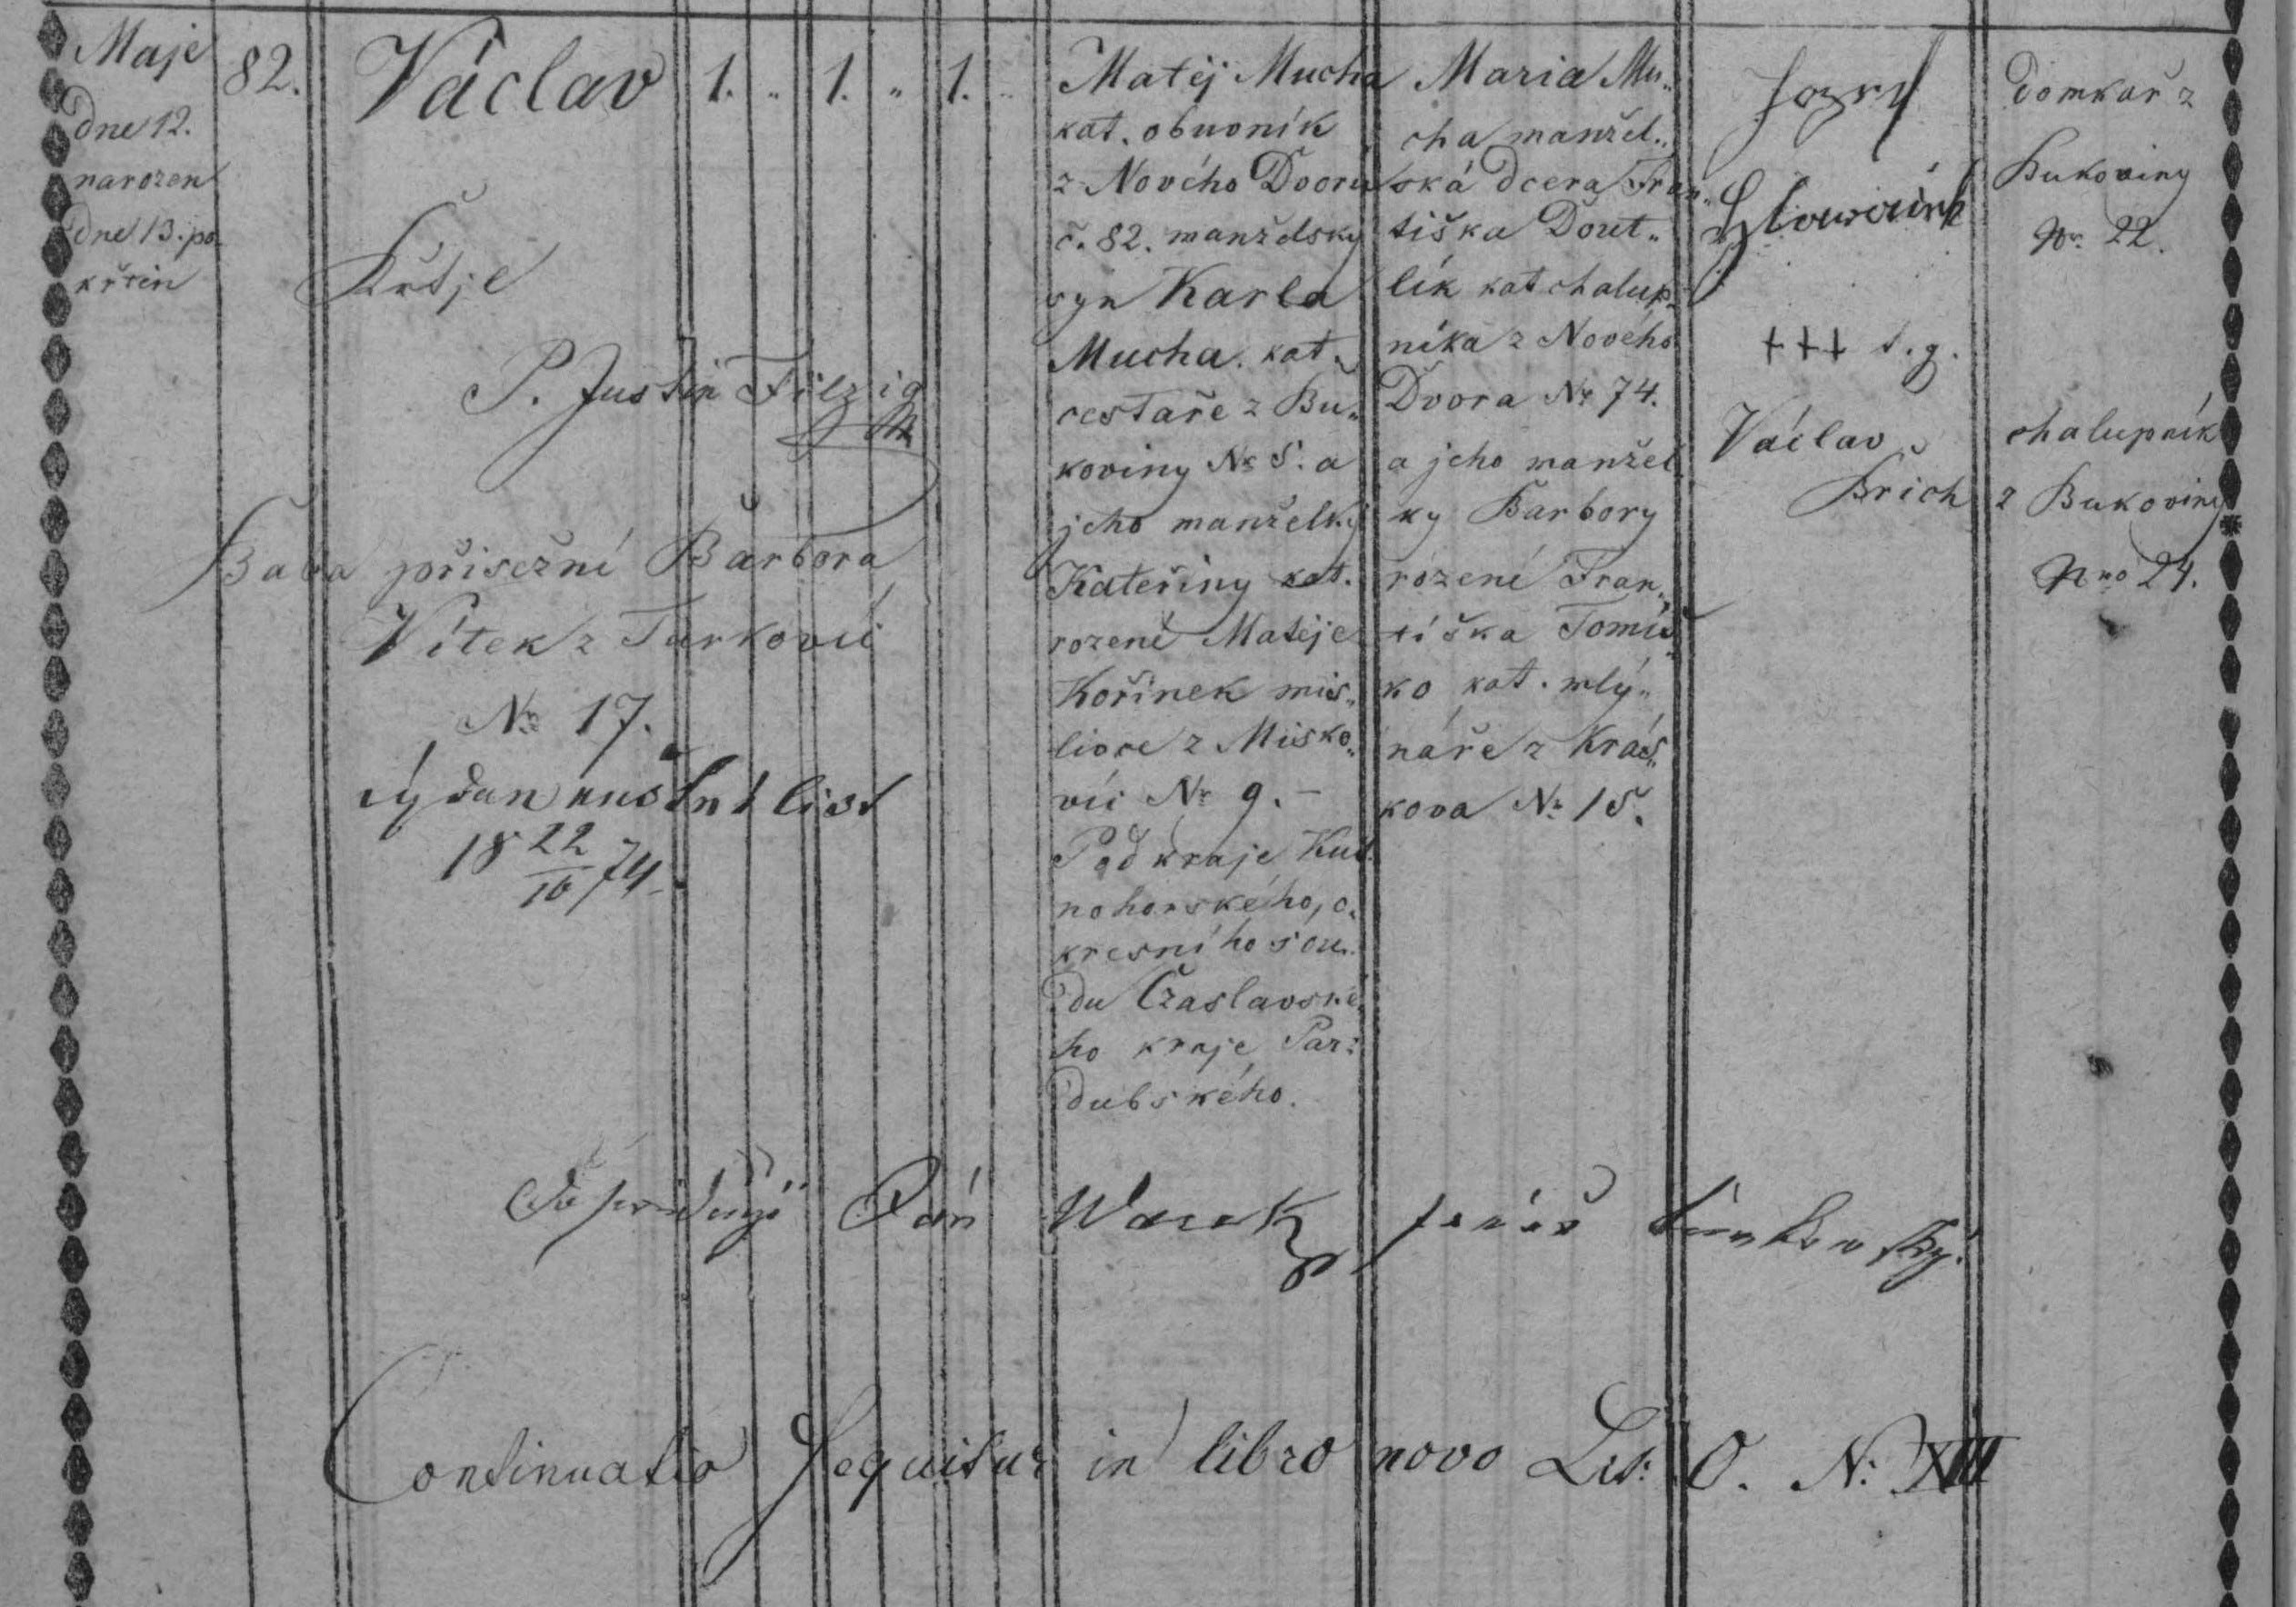 Maje
dne 12.
narozen
dne 13. po
křtin
82.
Václav 1. „ 1. „ 1. „
Křtil
P. Justin Filzig
Baba přisežní Barbora
Vítek z Turkovic
Nr 17.
vydan křestní list
18 22/10 74.
Matěj Mucha
kat. obuvník
z Nového Dvora
č. 82. manželsky
syn Karla
Mucha kat.
cestaře z Bu„
koviny Nr 5. a
jeho manželky
Kateřiny kat.
rozené Matěje
Kořínek mis„
livce z Misko„
vic Nr 9. –
Pod kraje Kut.
nohorského, o„
kresního sou„
du Czaslavské„
ho kraje Par„
dubského.
Maria Mu„
cha manžel„
ská dcera Fran„
tiška Dout„
lík kat chalup„
níka z Nového
Dvora Nr 74.
a jeho manžel
ky Barbory
rození Fran„
tiška Tomiš„
ko kat. mlý„
náře z Krás„
kova Nr 15.
Jozef
+++
Václav
Brich
domkař z
Bukoviny
Nr. 22.
chalupník
z Bukoviny
Nro 24.
Pan
Continuatio sequitur in libro novo Lit: O. N: XIII